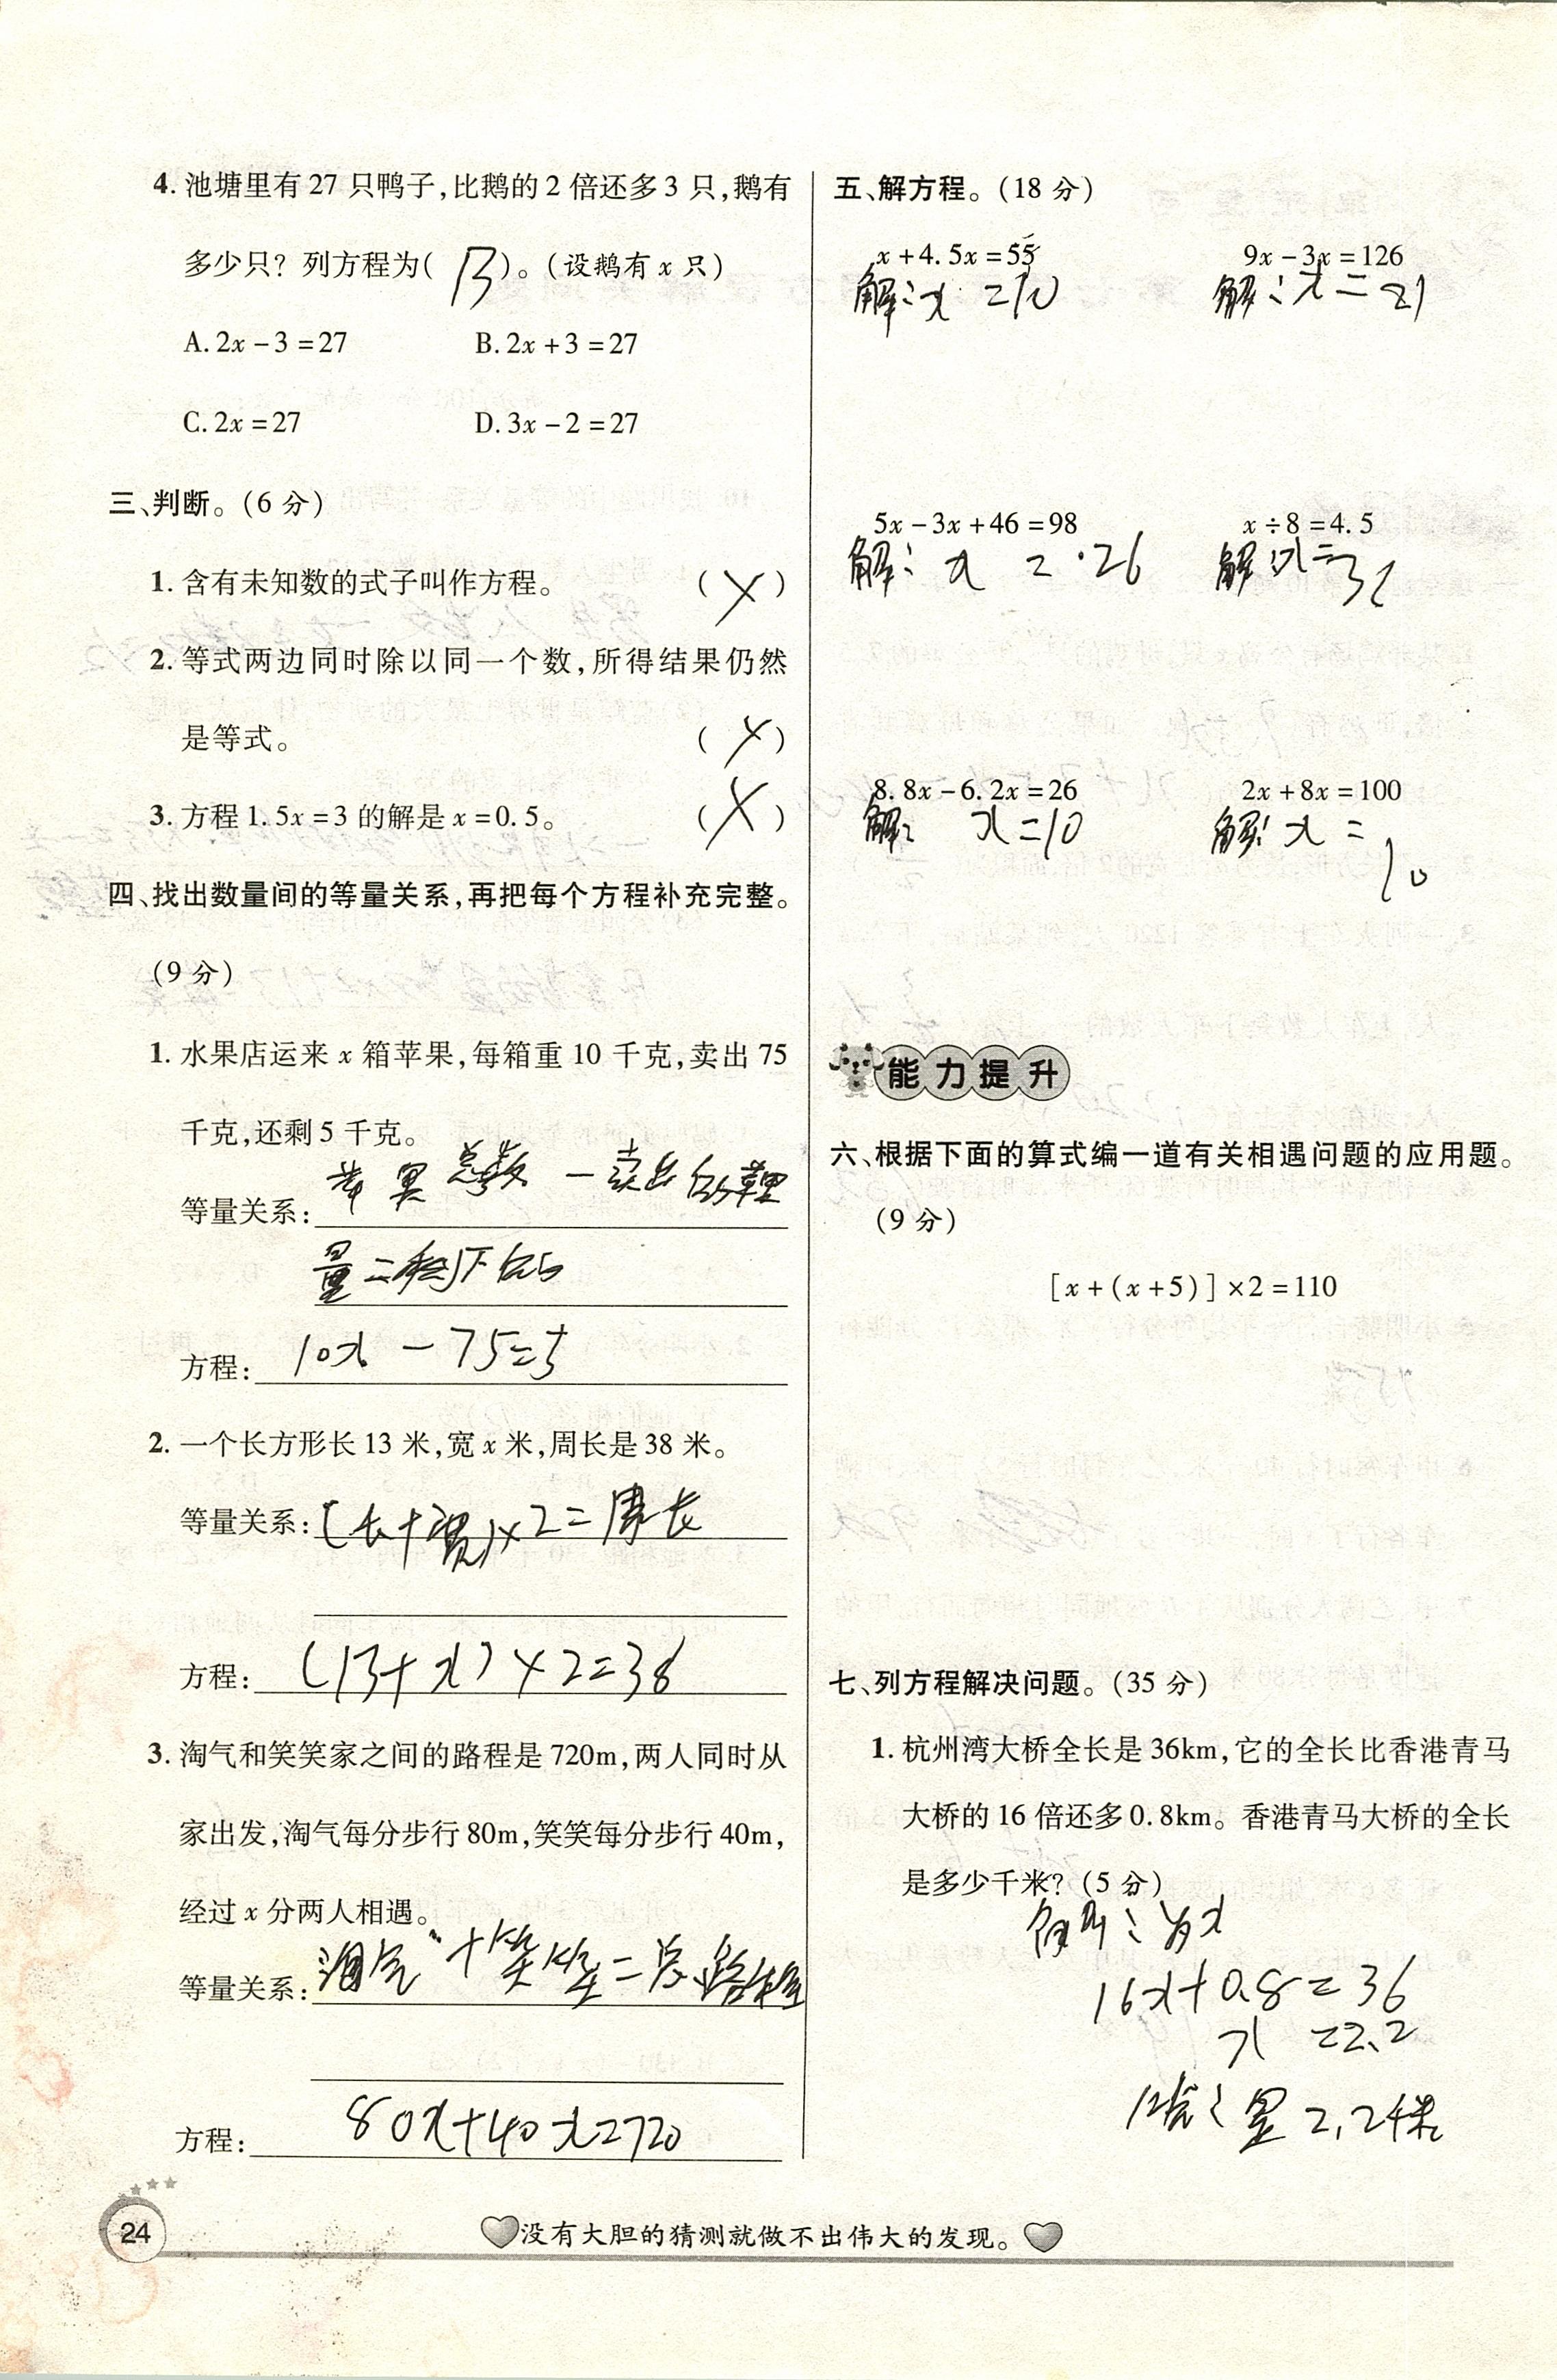 4. 池塘里有27只鸭子,比鹅的2倍还多3只,鹅有
多少只？列方程为( B )。(设鹅有x只)
A. 2x－3＝27 B. 2x＋3＝27
C. 2x＝27 D. 3x－2＝27
三、判断。(6分)
1. 含有未知数的式子叫作方程。 (×)
2. 等式两边同时除以同一个数,所得结果仍然
是等式。 (×)
3. 方程1.5x＝3的解是x＝0.5。 (×)
四、找出数量间的等量关系,再把每个方程补充完整。
(9分)
1. 水果店运来x箱苹果,每箱重10千克,卖出75
千克,还剩5千克。
等量关系: 苹果总数－卖出的重
量＝剩下的
方程: 10x－75＝5
2. 一个长方形长13米,宽x米,周长是38米。
等量关系: (长＋宽)×2＝周长
方程: (13＋x)×2＝38
3. 淘气和笑笑家之间的路程是720m,两人同时从
家出发,淘气每分步行80m,笑笑每分步行40m,
经过x分两人相遇。
等量关系: 淘气＋笑笑＝总路程
方程: 80x＋40x＝720
24
五、解方程。(18分)
x＋4.5x＝55 9x－3x＝126
解：x＝10 解：x＝21
5x－3x＋46＝98 x÷8＝4.5
解：x＝26 解：x＝36
8.8x－6.2x＝26 2x＋8x＝100
解： x＝10 解：x＝10
能力提升
六、根据下面的算式编一道有关相遇问题的应用题。
(9分)
[x＋(x＋5)]×2＝110
七、列方程解决问题。(35分)
1. 杭州湾大桥全长是36km,它的全长比香港青马
大桥的16倍还多0.8km。香港青马大桥的全长
是多少千米？(5分)
解：x
16x＋0.8＝36
x＝2.2
答：是2.2千米
没有大胆的猜测就做不出伟大的发现。